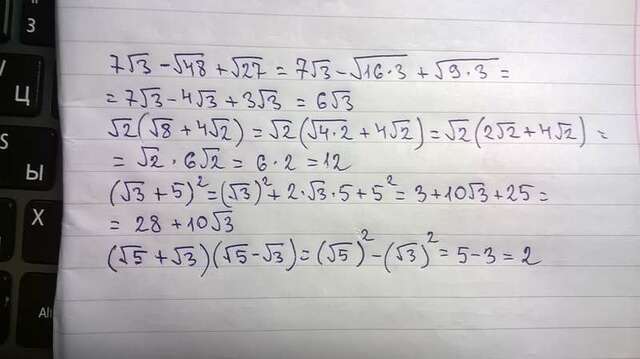 7√3 − √48 + √27 = 7√3 − √16·3 + √9·3 =
= 7√3 − 4√3 + 3√3 = 6√3
√2(√8 + 4√2) = √2(√4·2 + 4√2) = √2(2√2 + 4√2) =
= √2 · 6√2 = 6·2 = 12
(√3 + 5)² = (√3)² + 2·√3·5 + 5² = 3 + 10√3 + 25 =
= 28 + 10√3
(√5 + √3)(√5 − √3) = (√5)² − (√3)² = 5 − 3 = 2
3
Ц
S
Ы
X
Alt